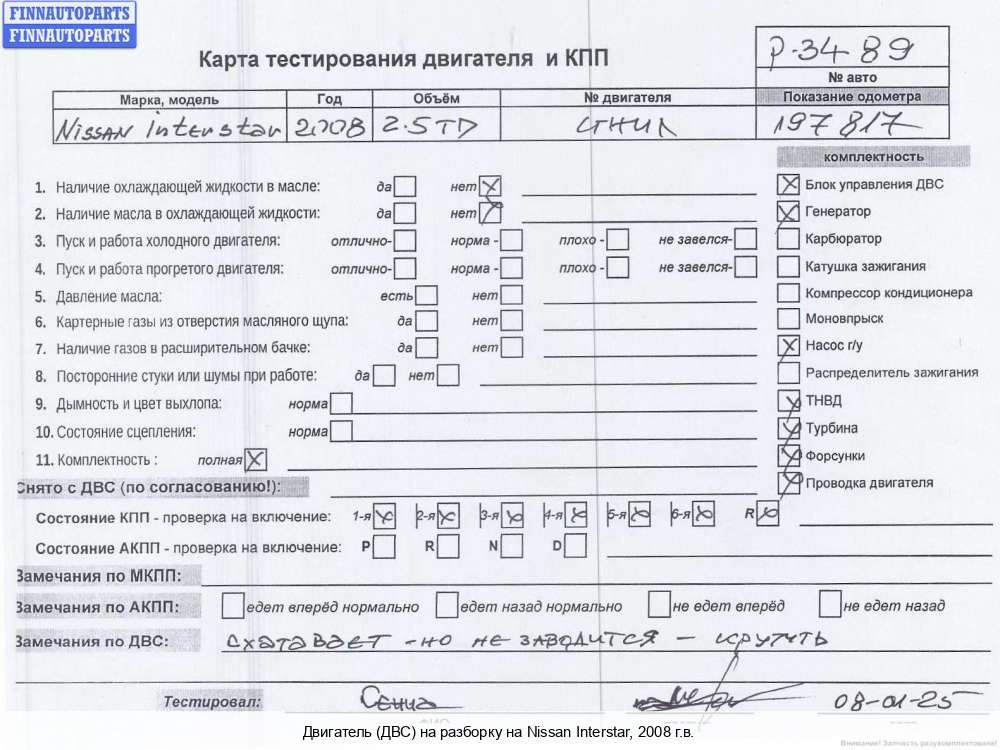 FINNAUTOPARTS
FINNAUTOPARTS
Карта тестирования двигателя и КПП
P-3489
№ авто
Марка, модель Год Объём № двигателя Показание одометра
Nissan interstar 2008 2.5TD 197817
комплектность
1. Наличие охлаждающей жидкости в масле: да нет
Блок управления ДВС
2. Наличие масла в охлаждающей жидкости: да нет
Генератор
3. Пуск и работа холодного двигателя: отлично- норма - плохо - не завелся-
Карбюратор
4. Пуск и работа прогретого двигателя: отлично- норма - плохо - не завелся-
Катушка зажигания
5. Давление масла: есть нет
Компрессор кондиционера
6. Картерные газы из отверстия масляного щупа: да нет
Моновпрыск
7. Наличие газов в расширительном бачке: да нет
Насос г/у
8. Посторонние стуки или шумы при работе: да нет
Распределитель зажигания
9. Дымность и цвет выхлопа: норма
ТНВД
10. Состояние сцепления: норма
Турбина
11. Комплектность : полная
Форсунки
Снято с ДВС (по согласованию!):
Проводка двигателя
Состояние КПП - проверка на включение: 1-я 2-я 3-я 4-я 5-я 6-я R
Состояние АКПП - проверка на включение: P R N D
Замечания по МКПП:
Замечания по АКПП: едет вперёд нормально едет назад нормально не едет вперёд не едет назад
Замечания по ДВС: схватавает - но не заводится - крутить
Тестировал: 08-01-25
Двигатель (ДВС) на разборку на Nissan Interstar, 2008 г.в.
Внимание! Запчасть разукомплектована!